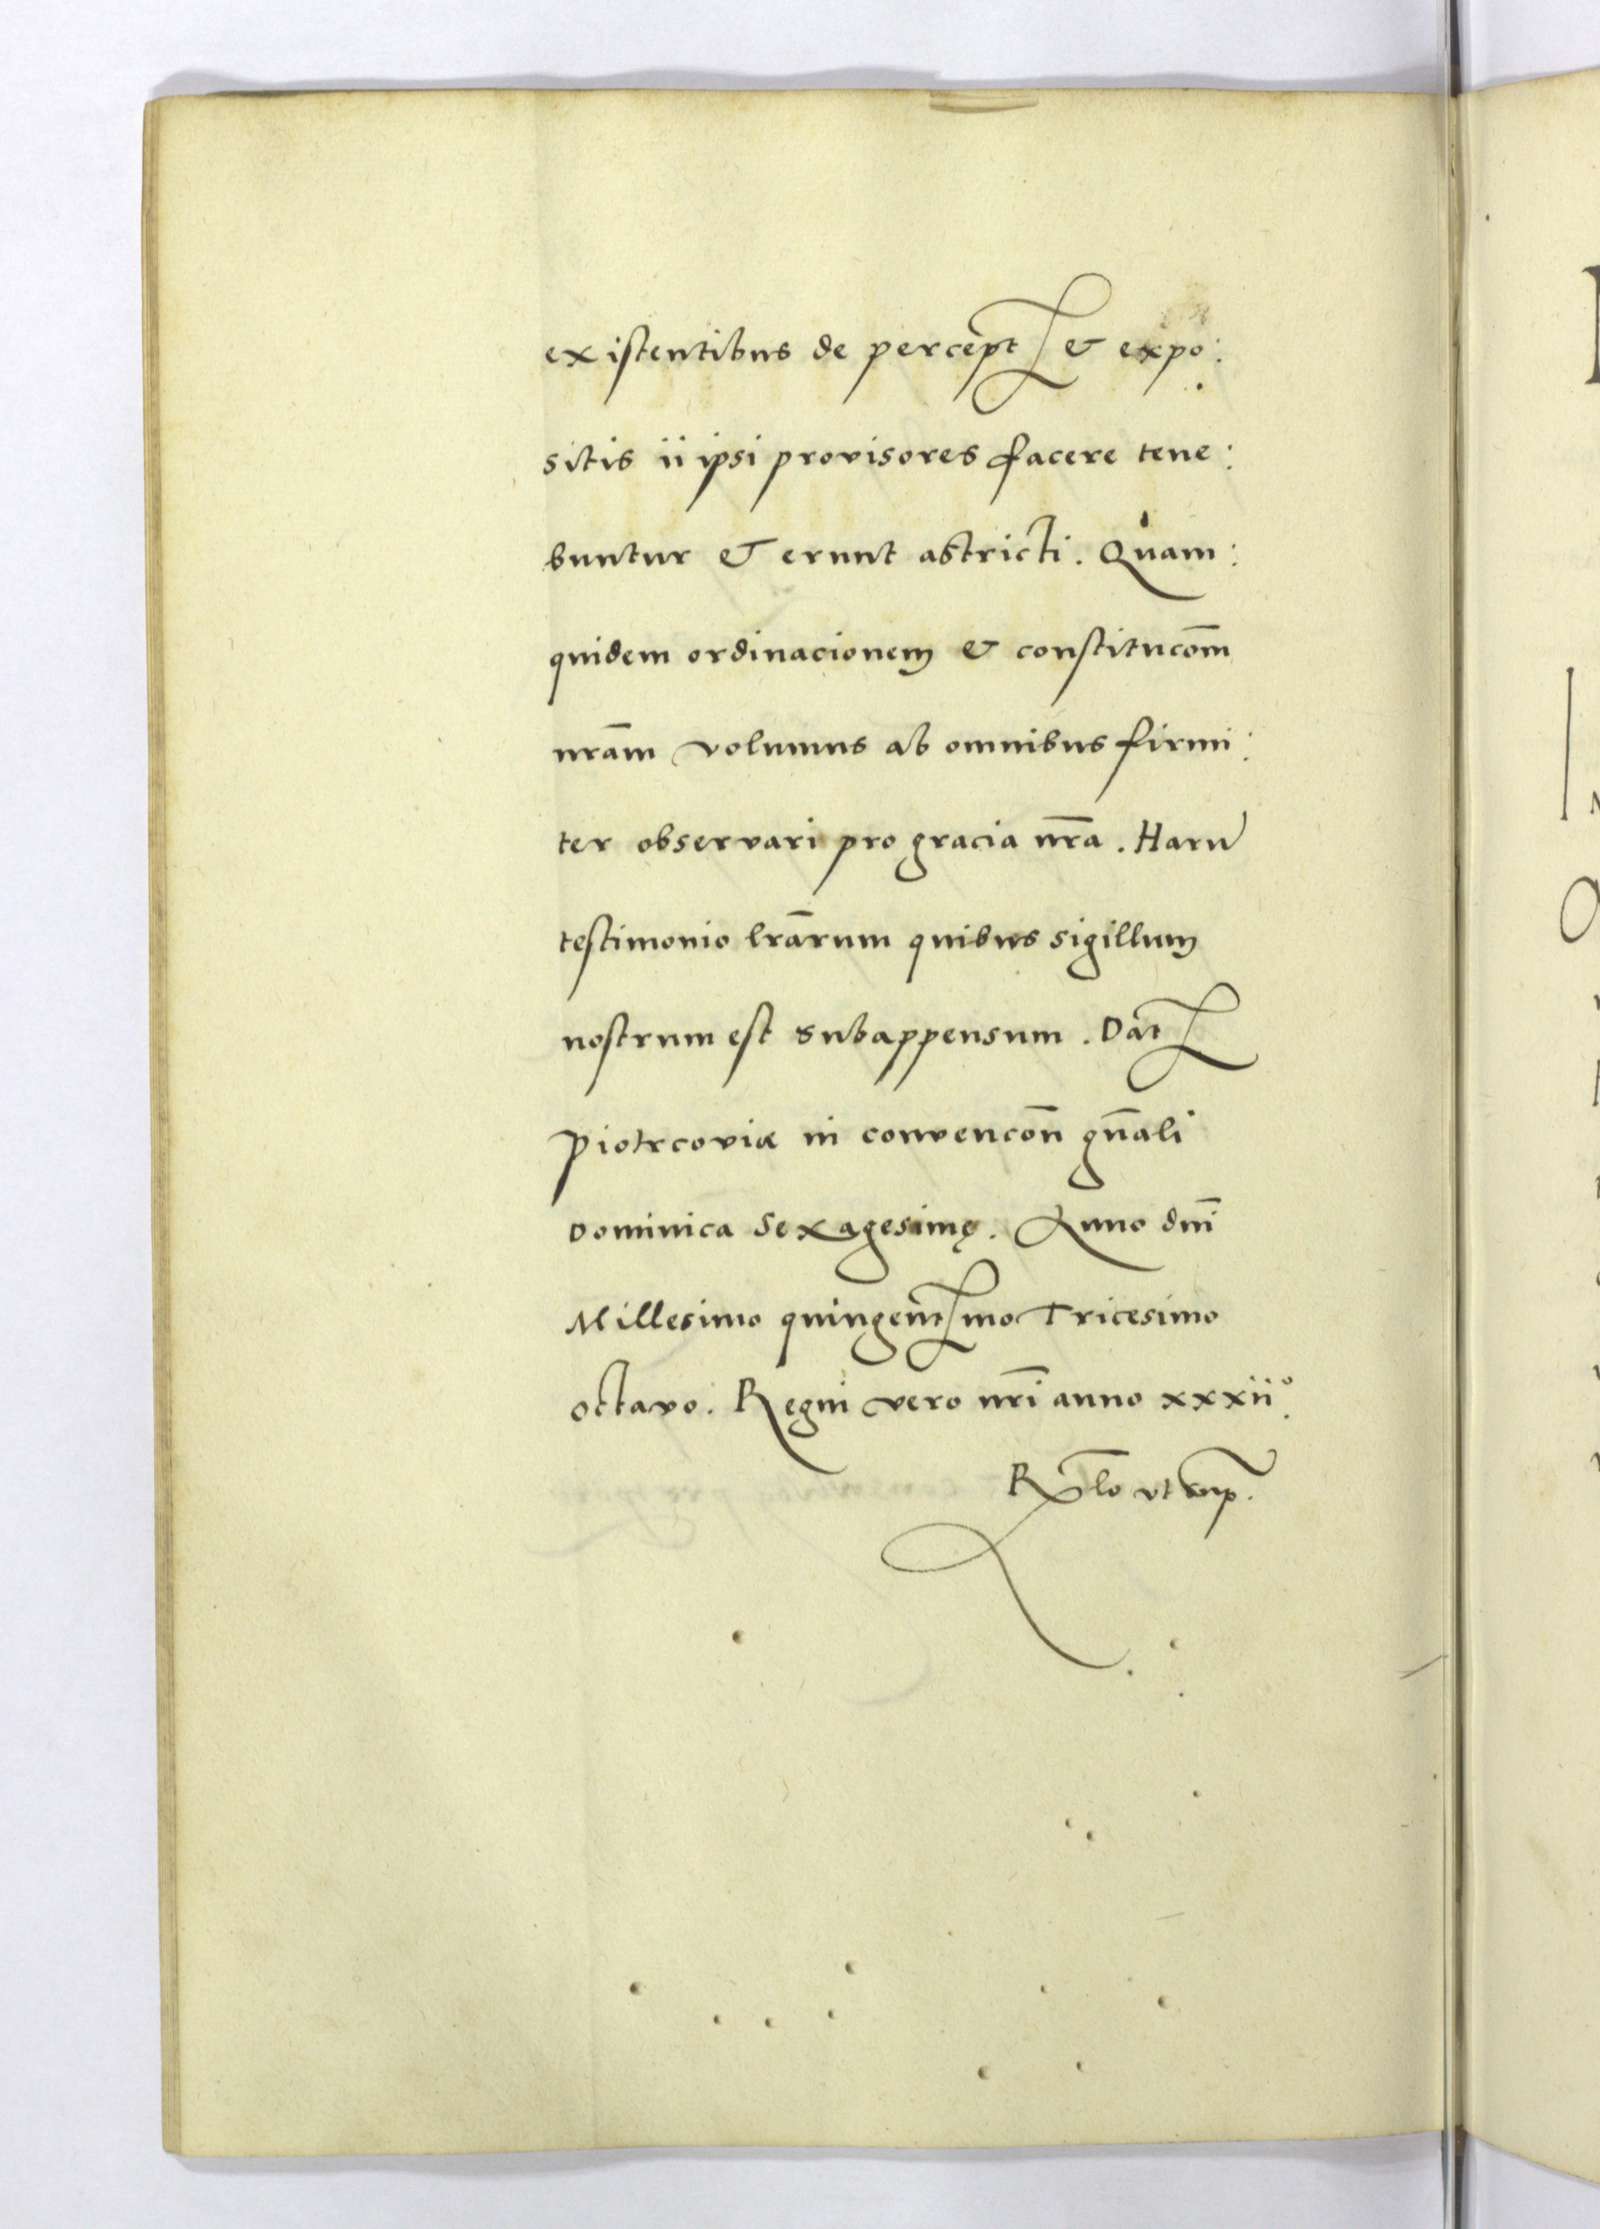 existentibus de percept & expo:
sitis ii ipsi provisores facere tene:
buntur & erunt astricti. Quam:
quidem ordinacionem & constitucōm
nrām volumus ab omnibus firmi:
ter observari pro gracia nr̄a. Harū
testimonio lrārum quibus sigillum
nostrum est subappensum. Dat
Piotrcoviæ in convencōn gn̄ali
Dominica Sexagesimę. Anno dn̄i
Millesimo quingentmo Tricesimo
octavo. Regni vero nr̄i anno xxxii°.
R̄lo ut sup.